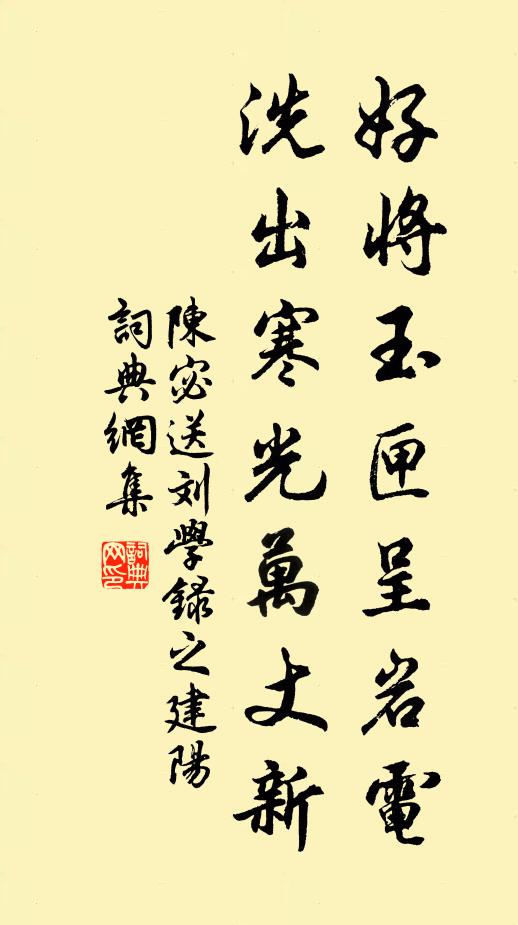 好將玉匣呈岩電
洗出寒光萬丈新
陳宓送刘學錄之建陽
詞典網集
詞典網印